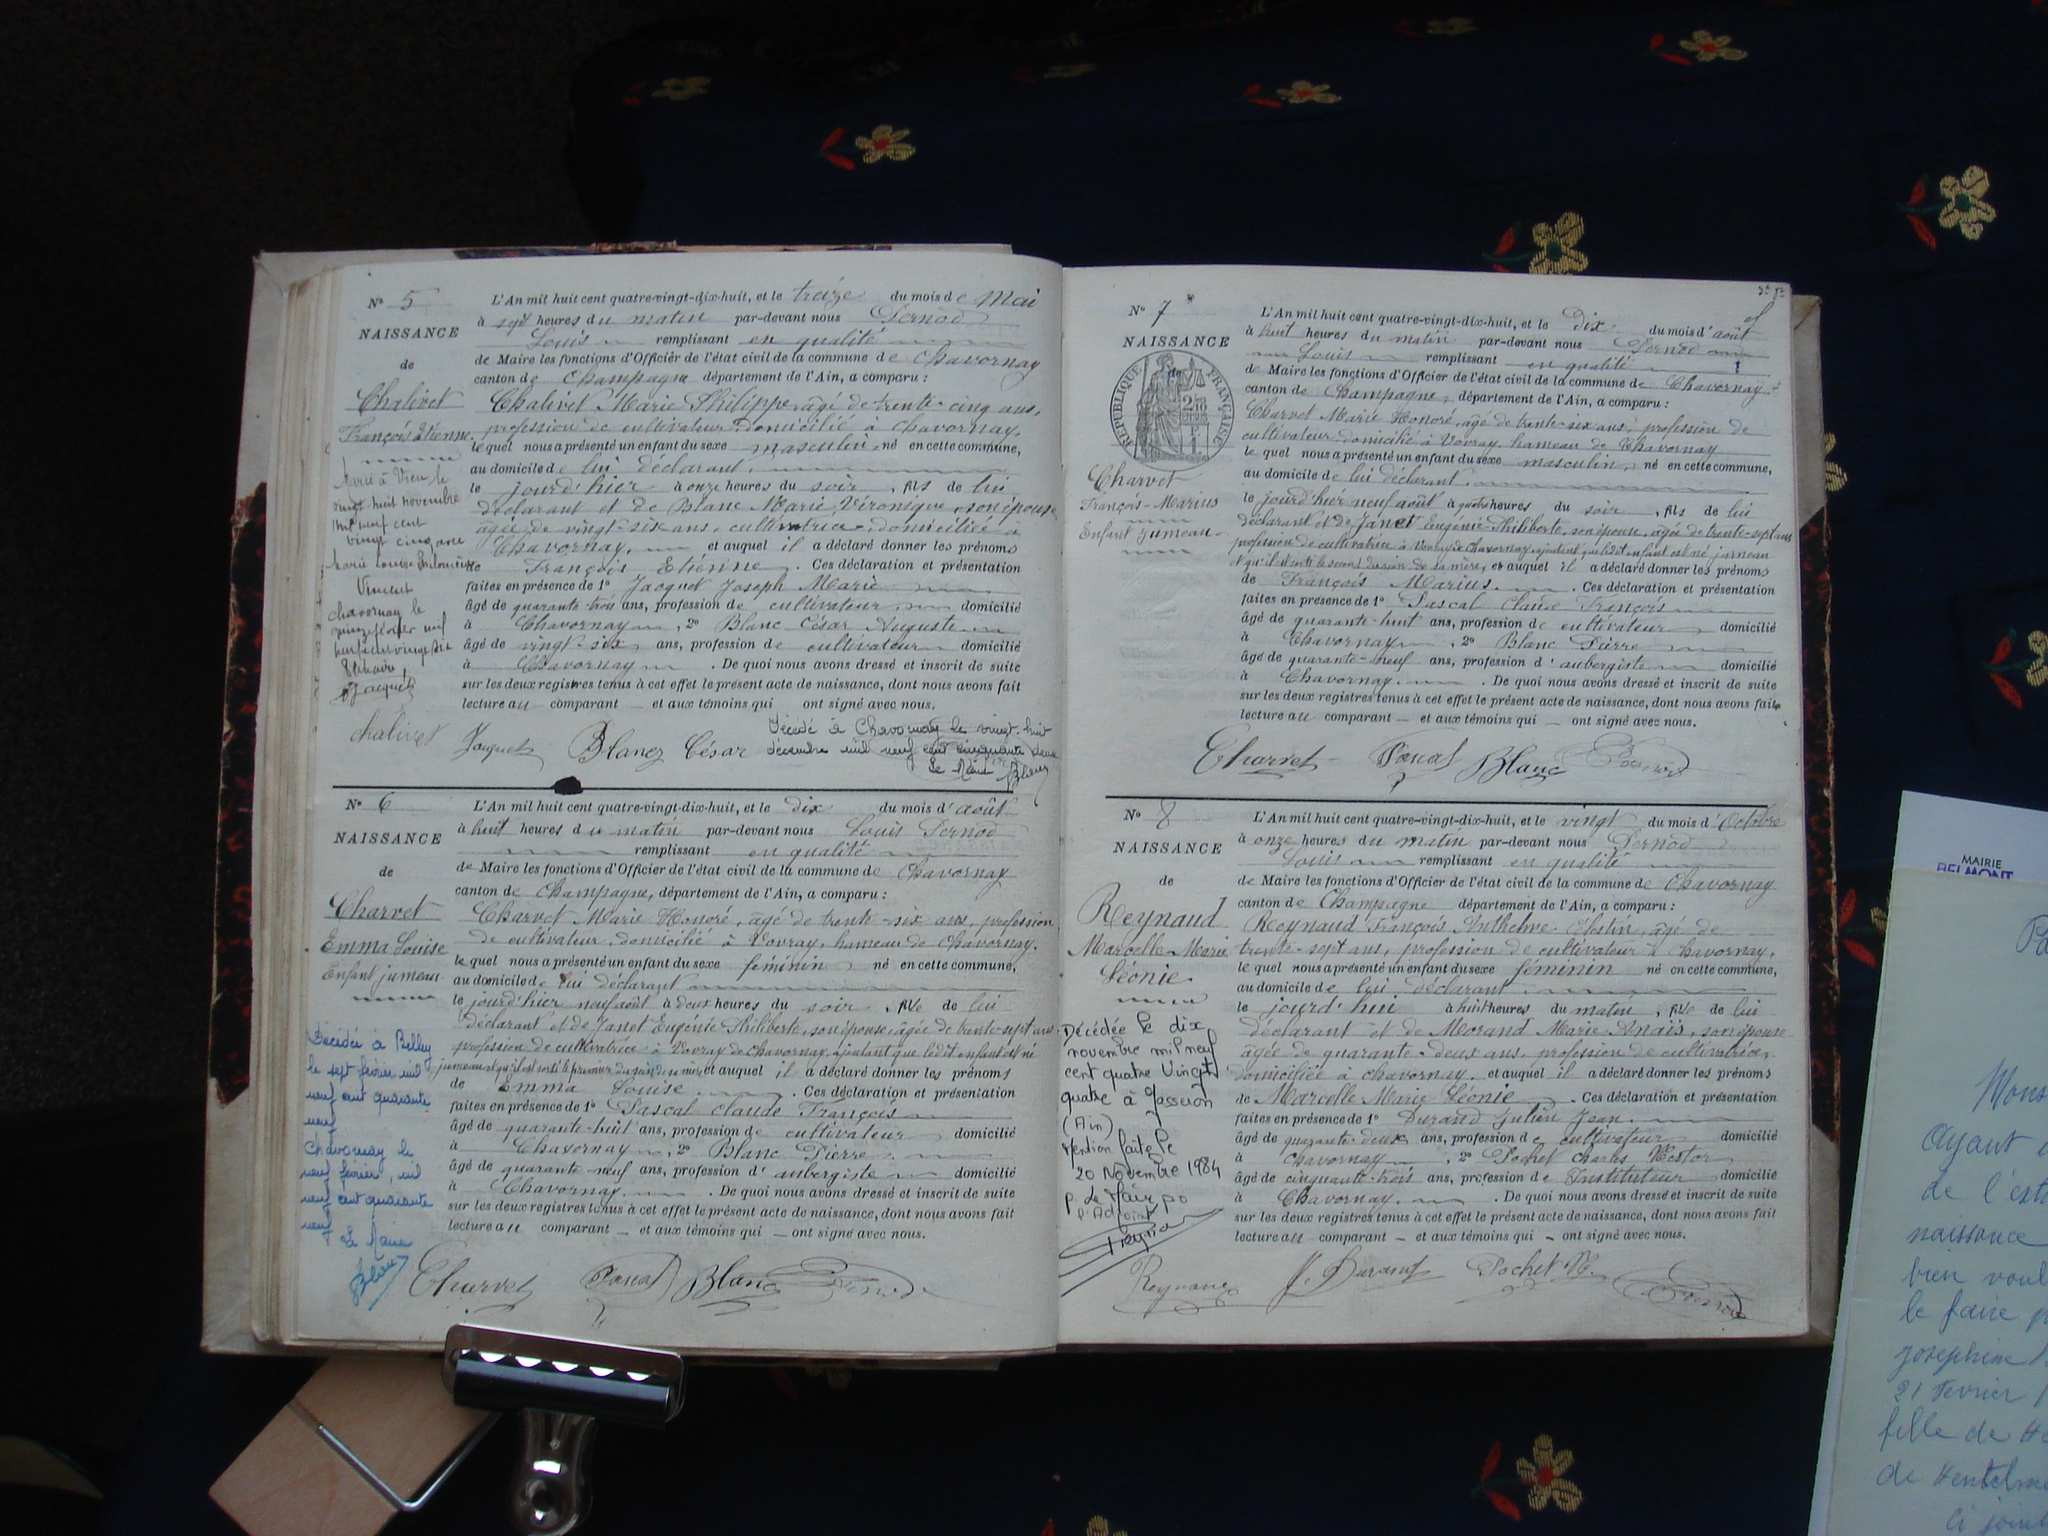 N° 5
NAISSANCE
de
Chalivet
François Etienne
Marié à Vieu le
vingt huit novembre
mil neuf cent
vingt cinq avec
Marie Louise Philomène
Vincent
Chavornay le
Le Maire,
Jacquet
L'An mil huit cent quatre-vingt-dix-huit, et le treize du mois de Mai
à sept heures du matin par-devant nous Pernod
Louis remplissant en qualité
de Maire les fonctions d'Officier de l'état civil de la commune de Chavornay
canton de Champagne département de l'Ain, a comparu :
Chalivet Marie Philippe âgé de trente-cinq ans,
profession de cultivateur domicilié à Chavornay,
lequel nous a présenté un enfant du sexe masculin, né en cette commune,
au domicile de lui déclarant,
le jourd'hier à onze heures du soir, fils de lui
déclarant et de Blanc Marie Véronique, son épouse
âgée de vingt-six ans, cultivatrice, domiciliée à
Chavornay, et auquel il a déclaré donner les prénoms
de François Etienne. Ces déclaration et présentation
faites en présence de 1° Jacquet Joseph Marie
âgé de quarante-trois ans, profession de cultivateur domicilié
à Chavornay, 2° Blanc César Auguste
âgé de vingt-six ans, profession de cultivateur domicilié
à Chavornay. De quoi nous avons dressé et inscrit de suite
sur les deux registres tenus à cet effet le présent acte de naissance, dont nous avons fait
lecture au comparant et aux témoins qui ont signé avec nous.
Chalivet Jacquet Blanc César
Décédé à Chavornay le vingt-huit
décembre mil neuf cent cinquante deux
Le Maire
N° 6
NAISSANCE
de
Charvet
Emma Louise
Enfant jumeau
Décédée à Belley
le sept février mil
neuf cent quarante
neuf
Chavornay le
neuf février mil
neuf cent quarante
neuf
Le Maire
L'An mil huit cent quatre-vingt-dix-huit, et le dix du mois d'août
à huit heures du matin par-devant nous Louis Pernod
remplissant en qualité
de Maire les fonctions d'Officier de l'état civil de la commune de Chavornay
canton de Champagne, département de l'Ain, a comparu :
Charvet Marie Honoré, âgé de trente-six ans, profession
de cultivateur domicilié à Vovray, hameau de Chavornay.
lequel nous a présenté un enfant du sexe féminin né en cette commune,
au domicile de lui déclarant
le jourd'hier neuf août à deux heures du soir, fille de lui
déclarant et de Janet Eugénie Philiberte, son épouse, âgée de trente-sept ans
profession de cultivatrice à Vovray de Chavornay, ajoutant que ledit enfant est né
jumeau et qu'il est sorti le premier du sein de sa mère et auquel il a déclaré donner les prénoms
de Emma Louise. Ces déclaration et présentation
faites en présence de 1° Pascal Claude François
âgé de quarante-huit ans, profession de cultivateur domicilié
à Chavornay, 2° Blanc Pierre
âgé de quarante-neuf ans, profession d'aubergiste domicilié
à Chavornay. De quoi nous avons dressé et inscrit de suite
sur les deux registres tenus à cet effet le présent acte de naissance, dont nous avons fait
lecture au comparant et aux témoins qui ont signé avec nous.
Charvet Pascal Blanc Pernod
N° 7
NAISSANCE
de
RÉPUBLIQUE FRANÇAISE
Charvet
François-Marius
Enfant jumeau
L'An mil huit cent quatre-vingt-dix-huit, et le dix du mois d'août
à huit heures du matin par-devant nous Pernod
Louis remplissant en qualité
de Maire les fonctions d'Officier de l'état civil de la commune de Chavornay
canton de Champagne, département de l'Ain, a comparu :
Charvet Marie Honoré, âgé de trente-six ans, profession de
cultivateur domicilié à Vovray, hameau de Chavornay
lequel nous a présenté un enfant du sexe masculin, né en cette commune,
au domicile de lui déclarant
le jourd'hier neuf août à quatre heures du soir, fils de lui
déclarant et de Janet Eugénie-Philiberte, son épouse, âgée de trente-sept ans
profession de cultivatrice à Vovray de Chavornay, ajoutant que ledit enfant est né jumeau
et qu'il est sorti le second du sein de sa mère, et auquel il a déclaré donner les prénoms
de François Marius. Ces déclaration et présentation
faites en présence de 1° Pascal Claude François
âgé de quarante-huit ans, profession de cultivateur domicilié
à Chavornay, 2° Blanc Pierre
âgé de quarante-neuf ans, profession d'aubergiste domicilié
à Chavornay. De quoi nous avons dressé et inscrit de suite
sur les deux registres tenus à cet effet le présent acte de naissance, dont nous avons fait
lecture au comparant et aux témoins qui ont signé avec nous.
Charvet Pascal Blanc Pernod
N° 8
NAISSANCE
de
Reynaud
Marcelle-Marie
Léonie
Décédée le dix
novembre mil neuf
cent quatre vingt
quatre à
(Ain)
Mention faite le
20 Novembre 1984
p. le Maire po
l'Adjoint
L'An mil huit cent quatre-vingt-dix-huit, et le vingt du mois d'Octobre
à onze heures du matin par-devant nous Pernod
Louis remplissant en qualité
de Maire les fonctions d'Officier de l'état civil de la commune de Chavornay
canton de Champagne département de l'Ain, a comparu :
Reynaud François Anthelme Célestin, âgé de
trente-sept ans, profession de cultivateur à Chavornay,
lequel nous a présenté un enfant du sexe féminin né en cette commune,
au domicile de lui déclarant
le jourd'hui à huit heures du matin, fille de lui
déclarant et de Morand Marie Anaïs, son épouse
âgée de quarante-deux ans, profession de cultivatrice,
domiciliée à Chavornay, et auquel il a déclaré donner les prénoms
de Marcelle Marie Léonie. Ces déclaration et présentation
faites en présence de 1° Durand Julien Jean
âgé de quarante-deux ans, profession de cultivateur domicilié
à Chavornay, 2° Pochet Charles Nestor
âgé de cinquante-trois ans, profession de Instituteur domicilié
à Chavornay. De quoi nous avons dressé et inscrit de suite
sur les deux registres tenus à cet effet le présent acte de naissance, dont nous avons fait
lecture au comparant et aux témoins qui ont signé avec nous.
Reynaud J. Durand Pochet N. Pernod
MAIRIE
BELMONT
Ayant
de l'
naissance
bien
le faire
Joséphine
21 Février
fille de
de
Ci joint